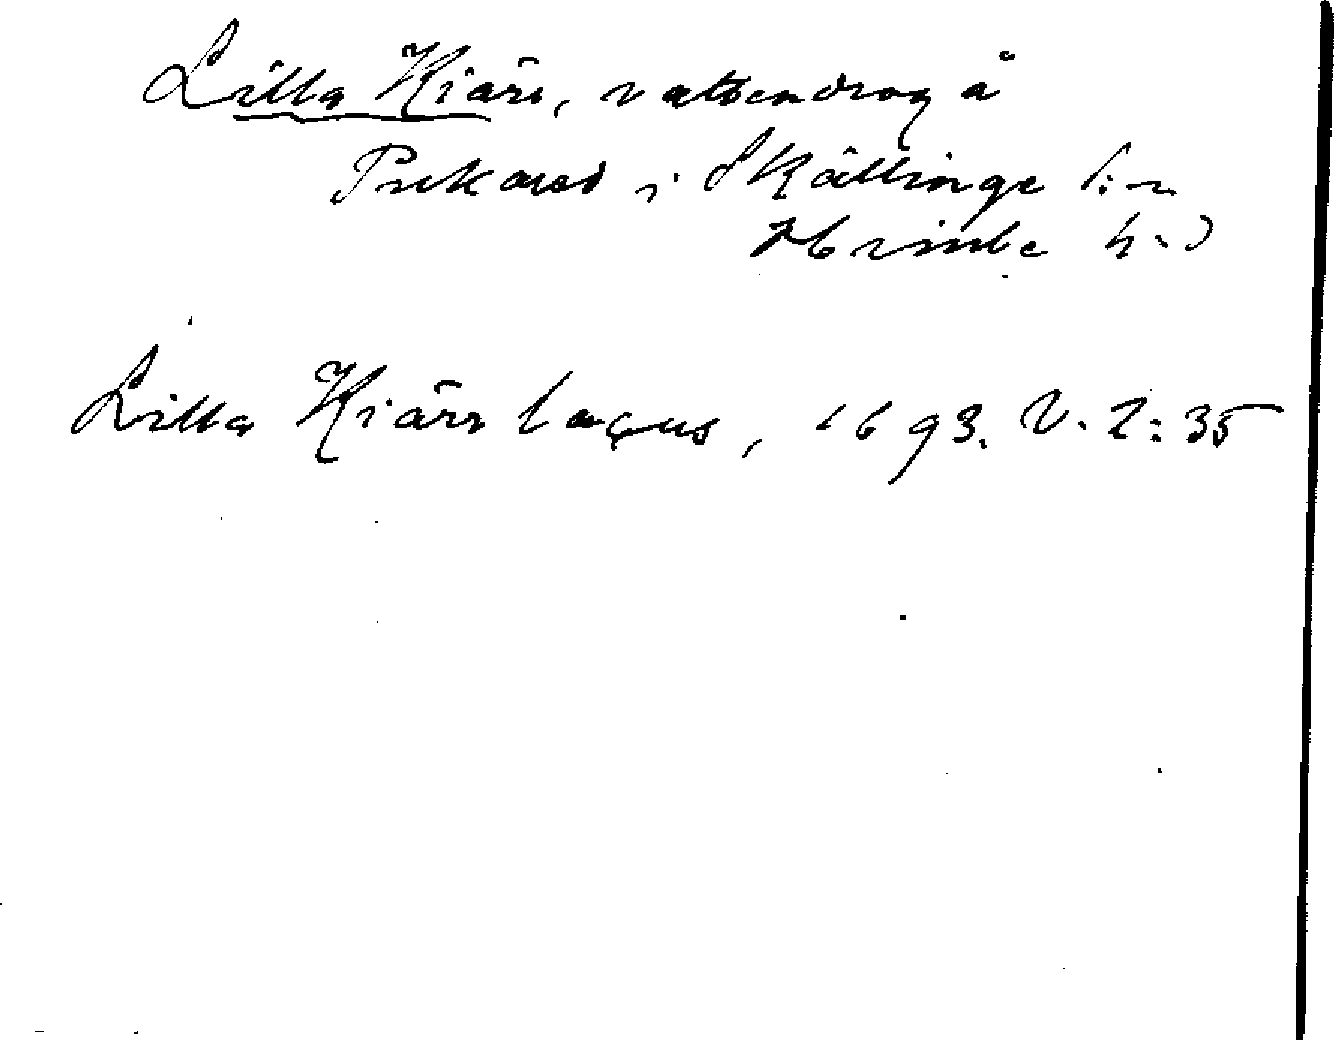 Lilla Kiärr, vattendrag å
Prekared i Skällinge s:n
Himle h:d
Lilla Kiärrs lacus, 1693. V. 2:35